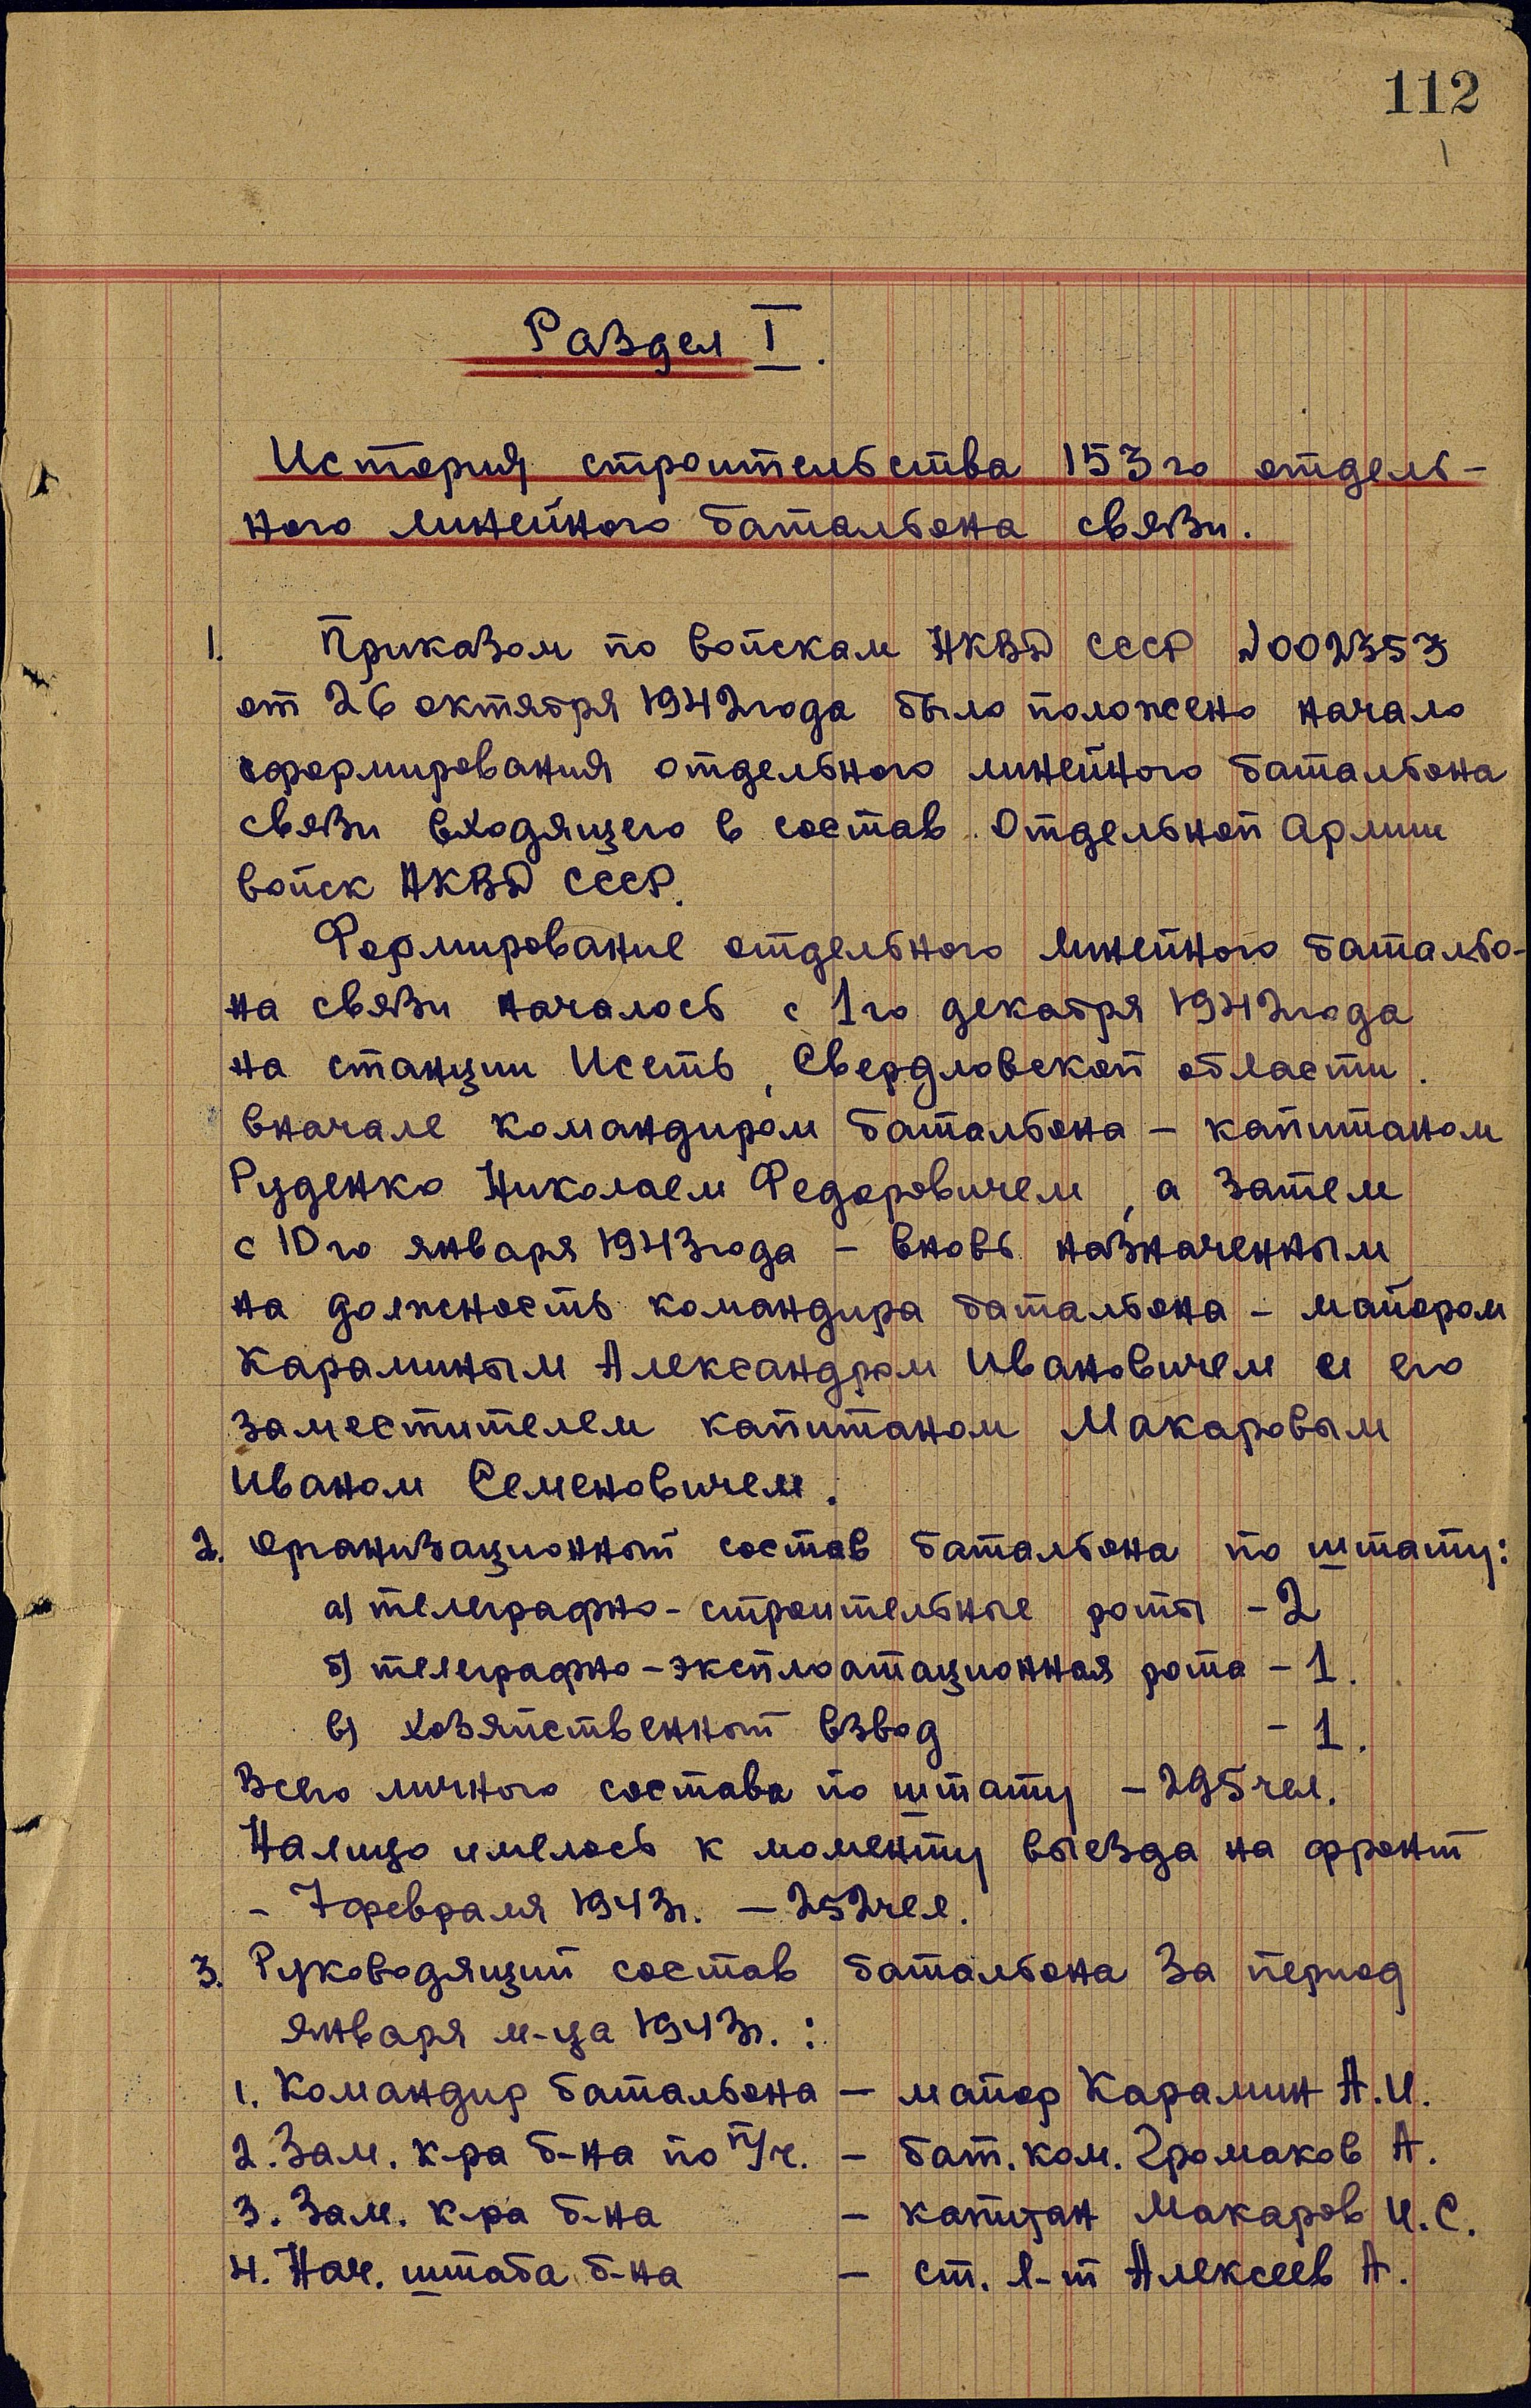 112
Раздел I.
История строительства 153го отдель-
ного линейного батальона связи.
1. Приказом по войскам НКВД СССР №002353
от 26 октября 1942года было положено начало
сформирования отдельного линейного батальона
связи входящего в состав Отдельной Армии
войск НКВД СССР.
Формирование отдельного линейного батальо-
на связи началось с 1го декабря 1942года
на станции Исеть, Свердловской области.
вначале командиром батальона – капитаном
Руденко Николаем Федоровичем, а затем
с 10го января 1943года – вновь назначенным
на должность командира батальона – майором
Караминым Александром Ивановичем и его
заместителем капитаном Макаровым
Иваном Семеновичем.
2. Организационный состав батальона по штату:
а) телеграфно-строительные роты – 2
б) телеграфно-эксплоатационная рота – 1.
в) хозяйственный взвод – 1.
Всего личного состава по штату – 295чел.
Налицо имелось к моменту выезда на фронт
– 7февраля 1943г. – 252чел.
3. Руководящий состав батальона за период
января м-ца 1943г. :
1. Командир батальона – майор Карамин А.И.
2. Зам. к-ра б-на по п/ч. – бат. ком. Громаков А.
3. Зам. к-ра б-на – капитан Макаров И.С.
4. Нач. штаба б-на – ст. л-т Алексеев А.